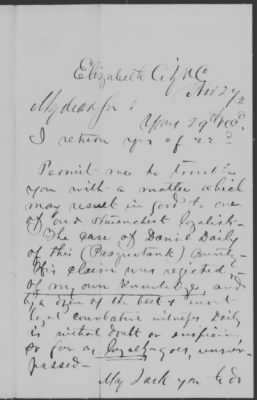 Elizabeth City NC
Nov 29/2
My dear Sir:
Yours 29th Recd.
I return yrs of 22d
Permit me to trouble
you with a matter which
may result in good to one
of our staunchest loyalists.
The case of Daniel Daily
of this (Pasquotank) County.
His claim was rejected,
of my own knowledge, and
by a dozen of the best & most
loyal combative witnesses Daily
is without doubt or suspicion,
so far as loyalty goes, unsur-
passed—
May I ask you to do